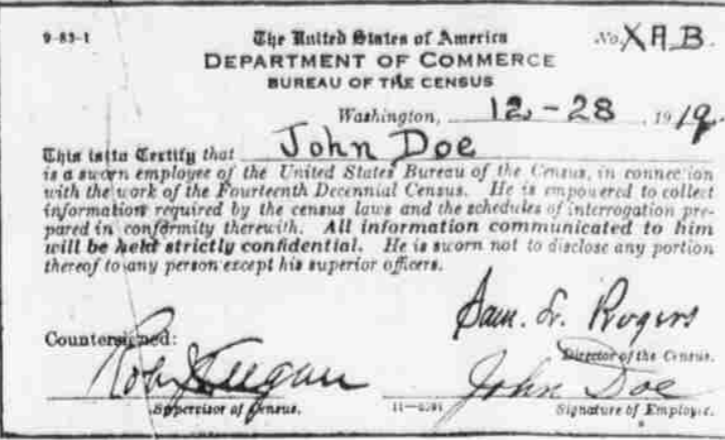 9-83-1
The United States of America
No. XAB.
DEPARTMENT OF COMMERCE
BUREAU OF THE CENSUS
Washington, 12-28, 1919.
This is to Certify that John Doe
is a sworn employee of the United States Bureau of the Census, in connection
with the work of the Fourteenth Decennial Census. He is empowered to collect
information required by the census laws and the schedules of interrogation pre-
pared in conformity therewith. All information communicated to him
will be held strictly confidential. He is sworn not to disclose any portion
thereof to any person except his superior officers.
Sam. L. Rogers
Director of the Census.
Countersigned:
Supervisor of Census.
John Doe
Signature of Employee.